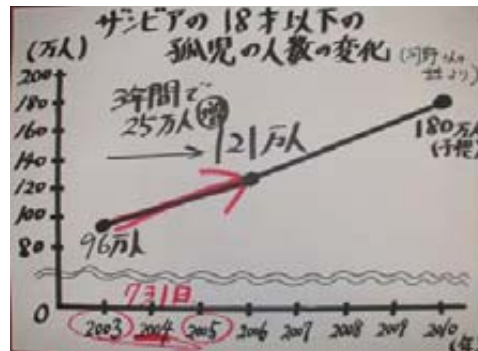 ザンビアの18才以下の
孤児の人数の変化
(万人)
200
180
160
140
120
100
80
0
3年間で
25万人増
121万人
96万人
180万人
(予想)
7月31日
2003 2004 2005 2006 2007 2008 2009 2010
(年)